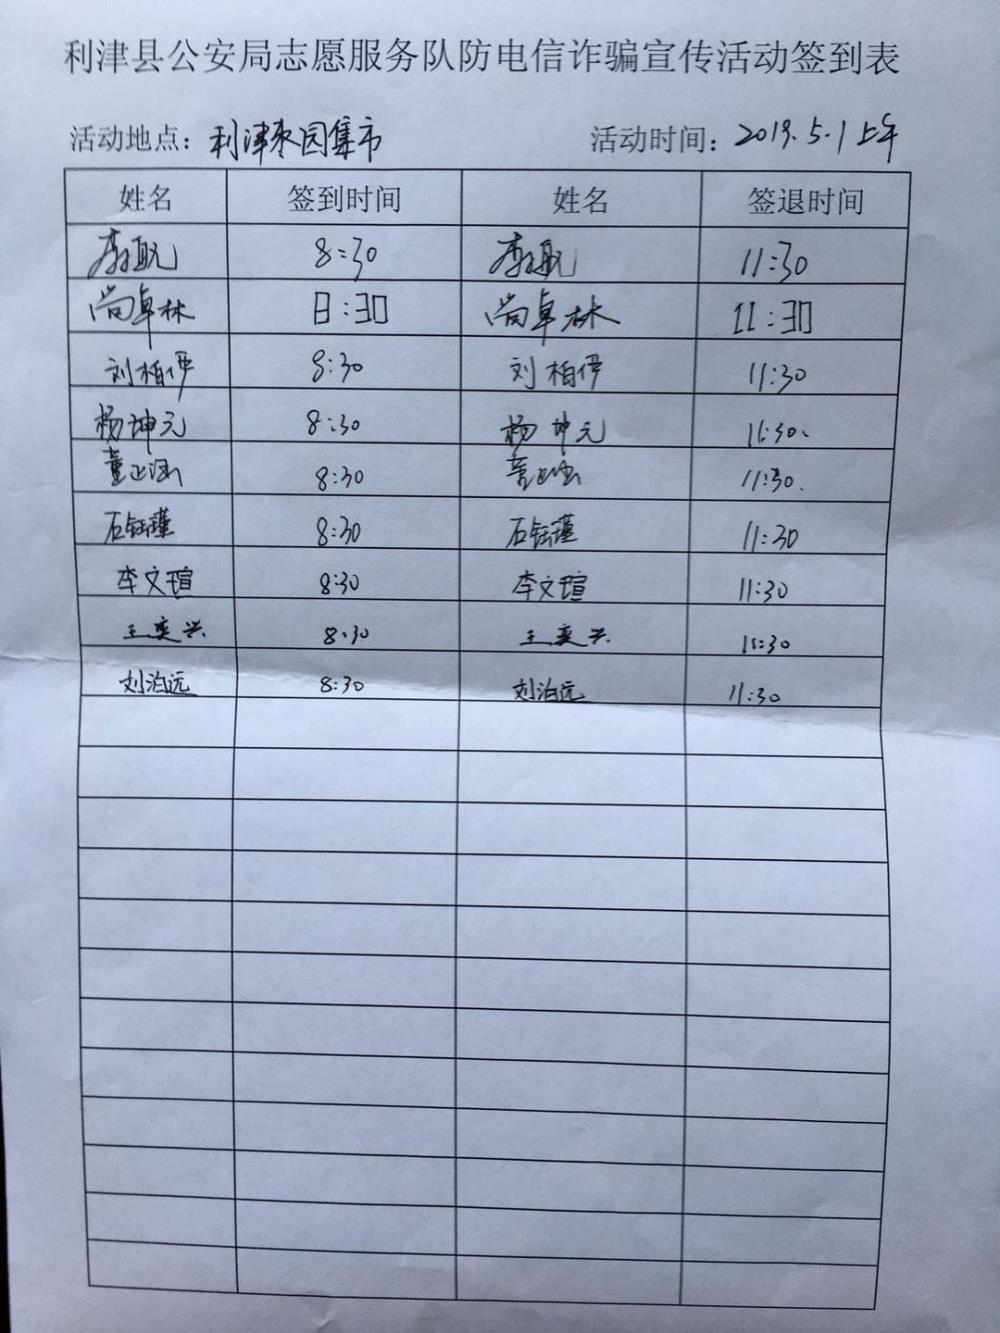 利津县公安局志愿服务队防电信诈骗宣传活动签到表
活动地点：利津枣园集市 活动时间：2019.5.1上午
姓名 签到时间 姓名 签退时间
8:30 11:30
尚卓林 8:30 尚卓林 11:30
刘柏伊 8:30 刘柏伊 11:30
杨坤元 8:30 杨坤元 11:30.
董正涵 8:30 董正涵 11:30.
石钰瑾 8:30 石钰瑾 11:30
李文瑄 8:30 李文瑄 11:30
王奕兴 8:30 王奕兴 11:30
刘泊远 8:30 刘泊远 11:30